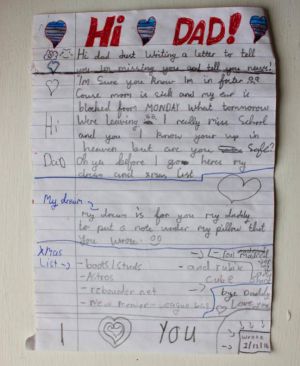 Hi DAD!
Hi dad Just Writing a letter to tell
you im missing you and tell you news!
Im Sure you Know Im in
Couse mom is sick and my ear is
blocked from MONDAY what tommorow
Were Leaving I really miss School
and you I Know your up in
heaven but are you Safe?
Oh ya before I go heres my
dream and xmas List
Hi
Dad
My dream
My dream is for you my daddy
to put a note under my pillow that
You wrote.
Xmas
List
- boots/Studs
- Astros
- rebounder net
- New Premier League ball
- and rubix
Cube
bye Daddy
Love you
I YOU
wrote